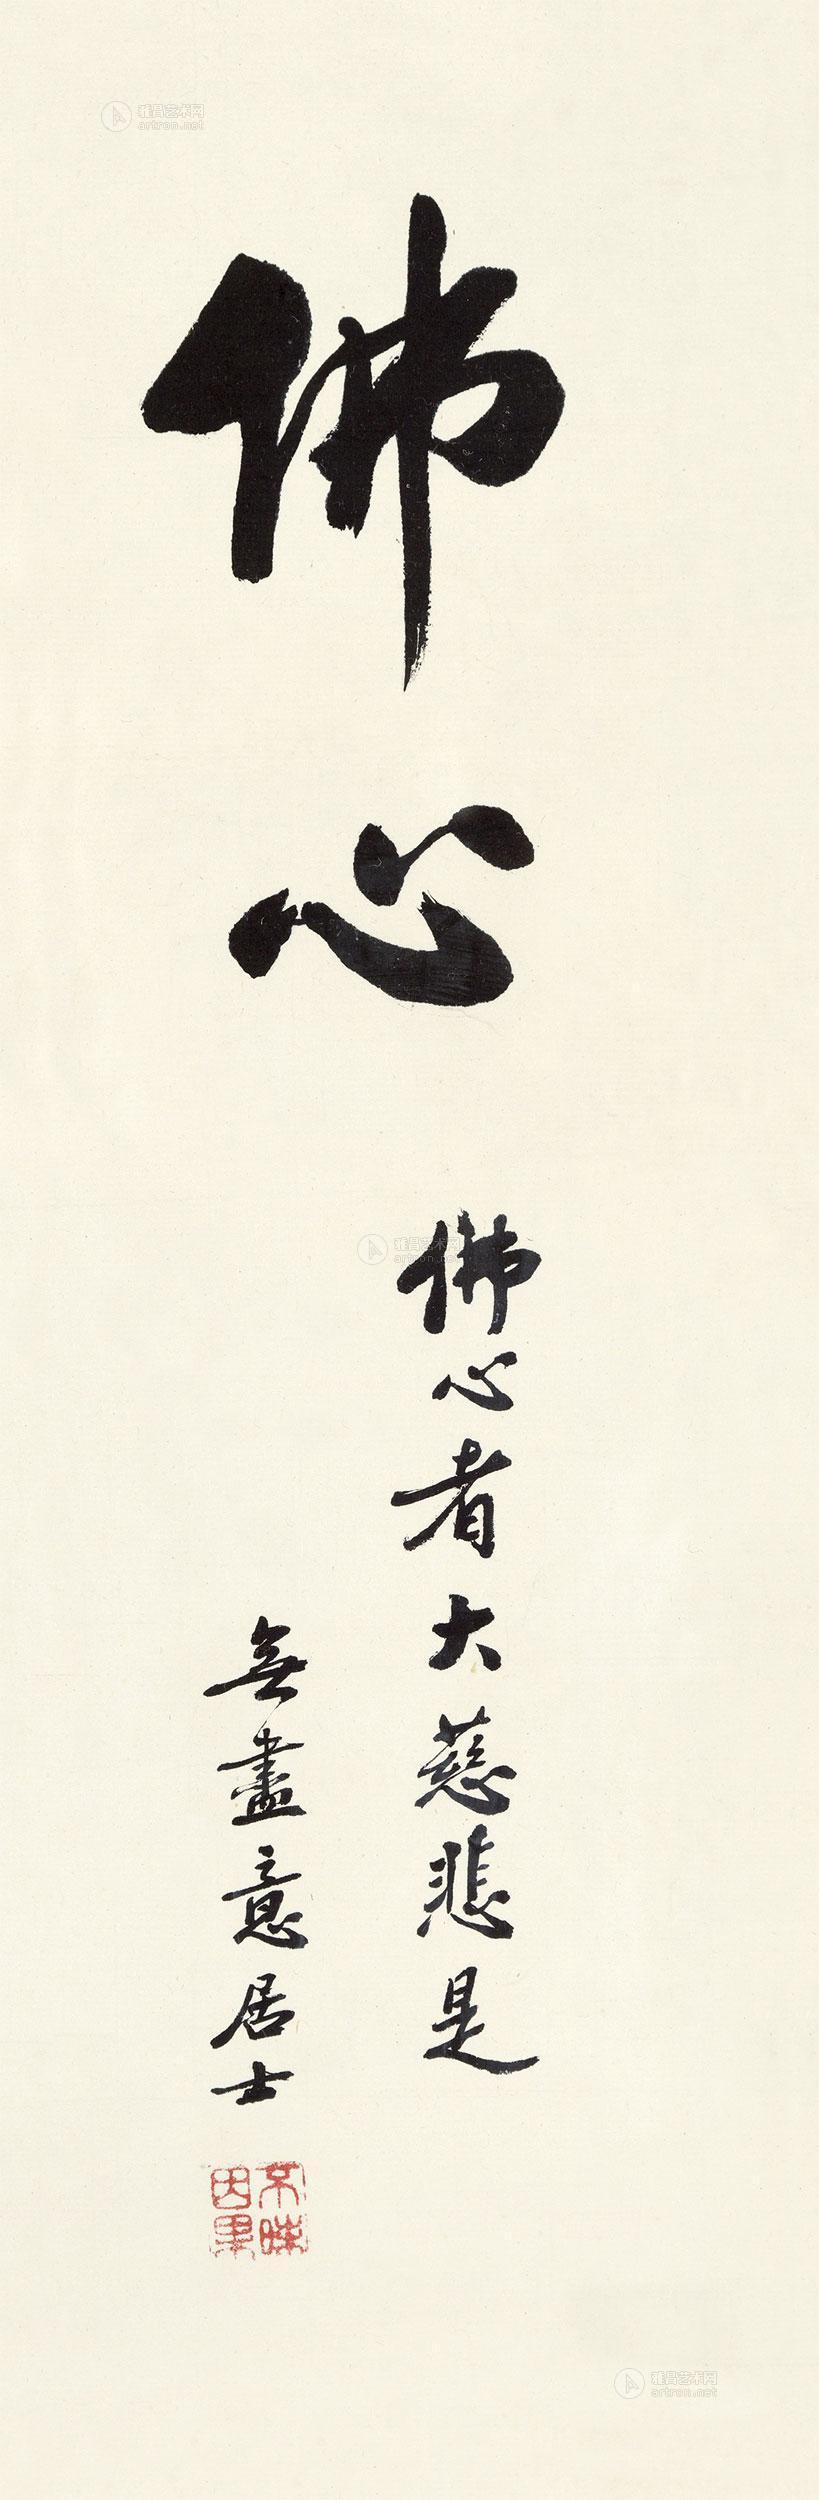 佛心
佛心者大慈悲是
無盡意居士
不昧因果
雅昌艺术网
artron.net
雅昌艺术网
artron.net
雅昌艺术网
artron.net